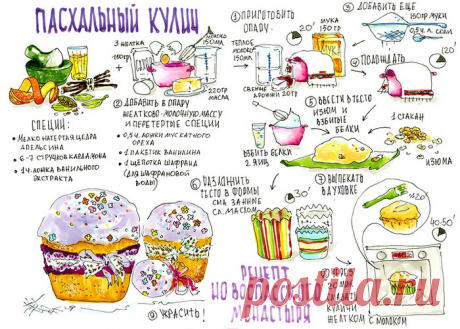 ПАСХАЛЬНЫЙ КУЛИЧ
3 желтка
150гр
молоко
150мл.
220гр
масла
специи:
• мелко натертая цедра
апельсина
• 6-7 стручков кардамона
• 1 ч.ложка ванильного
экстракта
② добавить в опару
желтково-молочную массу
и перетертые специи
• 0,5 ч. ложки мускатного
ореха
• 1 пакетик ванилина
• 1 щепотка шафрана
(для шафрановой
воды)
① приготовить
опару.
20'
теплое
молоко
150мл.
мука
150гр
свежие
дрожжи 20гр
③ добавить еще
муки
0,5 ч.л. соли
④ подождать
120'
⑤ ввести в тесто
изюм и
взбитые
белки
взбить белки
2 яиц
1 стакан
изюма
⑥ разложить
тесто в формы
смазанные
сл.маслом
30'
⑦ выпекать
в духовке
t°
40-50'
20 мин
смазать
куличи
желтком с молоком
⑨ украсить!
рецепт
монастыря
posila.ru